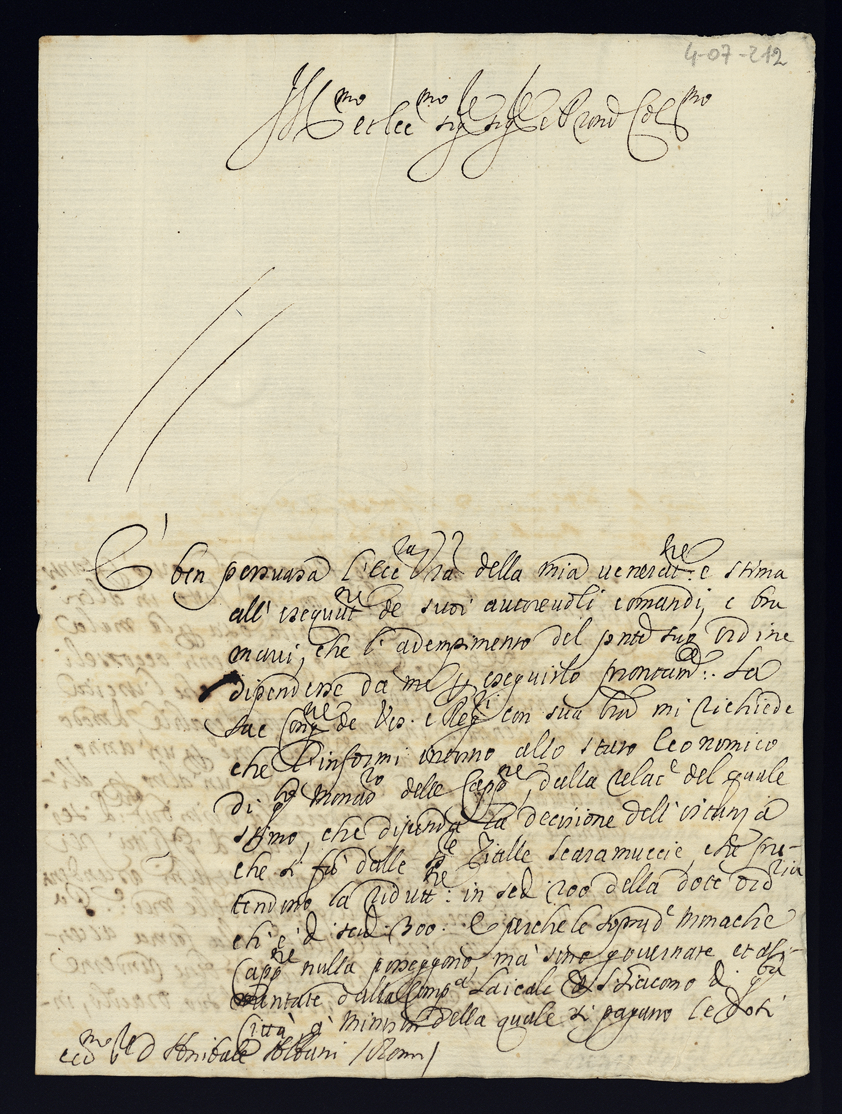 4-07-212
Ill.mo et Ecc.mo Sig.re Sig.re e Pron Col.mo
E' ben persuasa l'Ecc.za Vra della mia venerat.ne e stima
all' esequut.ne de suoi autorevoli comandi, e bra
marei, che l'adempimento del pnte suo ordine
dipendesse da me p eseguirlo prontam.te: La
Sac Cong.ne de Ves. e Reg.ri con sua mi richiede
che l'informi intorno allo stato Economico
di q.to Monro delle Capp.ne, dalla relac.e del quale
stimo, che dipenda la decisione dell' istanza
che si fa dalle Zitelle Scaramuccie, che
tendono la ridutt.ne in scd 200 della dote ord.ria
ch'è di scud: 300. E perche le Monache
Capp.ne nulla posseggono, ma sono governate et ali-
mentate dalla Comp.a Laicale di S. Giacomo di q.ta
Città, a' ministri della quale si pagano le doti
D Annibale Albani (Roma)